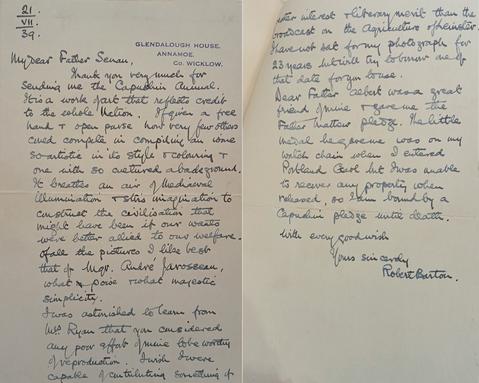 21
VII
39.
GLENDALOUGH HOUSE,
ANNAMOE,
Co. WICKLOW.
My dear Father Senan,
Thank you very much for
sending me the Capuchin Annual.
It is a work of art that reflects credit
to the whole Nation. If given a free
hand & open purse how very few others
could compete in compiling an
so artistic in its style & colouring &
one with so cultured a background.
It breathes an air of Mediaeval
Illumination & stirs imagination to
construct the civilisation that
might have been if our wants
were better allied to our welfare.
Of all the pictures I like best
that of Mgr. André Jarosseau,
what poise & what majestic
simplicity.
I was astonished to learn from
Mr. Ryan that you considered
any poor effort of mine to be worthy
of reproduction. I wish I were
capable of contributing something of
interest & literary merit than the
broadcast on the Agriculture of Leinster.
I have not sat for my photograph for
23 years but will try to borrow one of
that date for your use.
Dear Father Albert was a great
friend of mine & gave me the
Father Mathew pledge. The little
medal he gave me was on my
watch chain when I entered
Portland Gaol but I was unable
to recover any property when
released, so I am bound by a
Capuchin pledge until death.
With every good wish
Yours sincerely
Robert Barton.